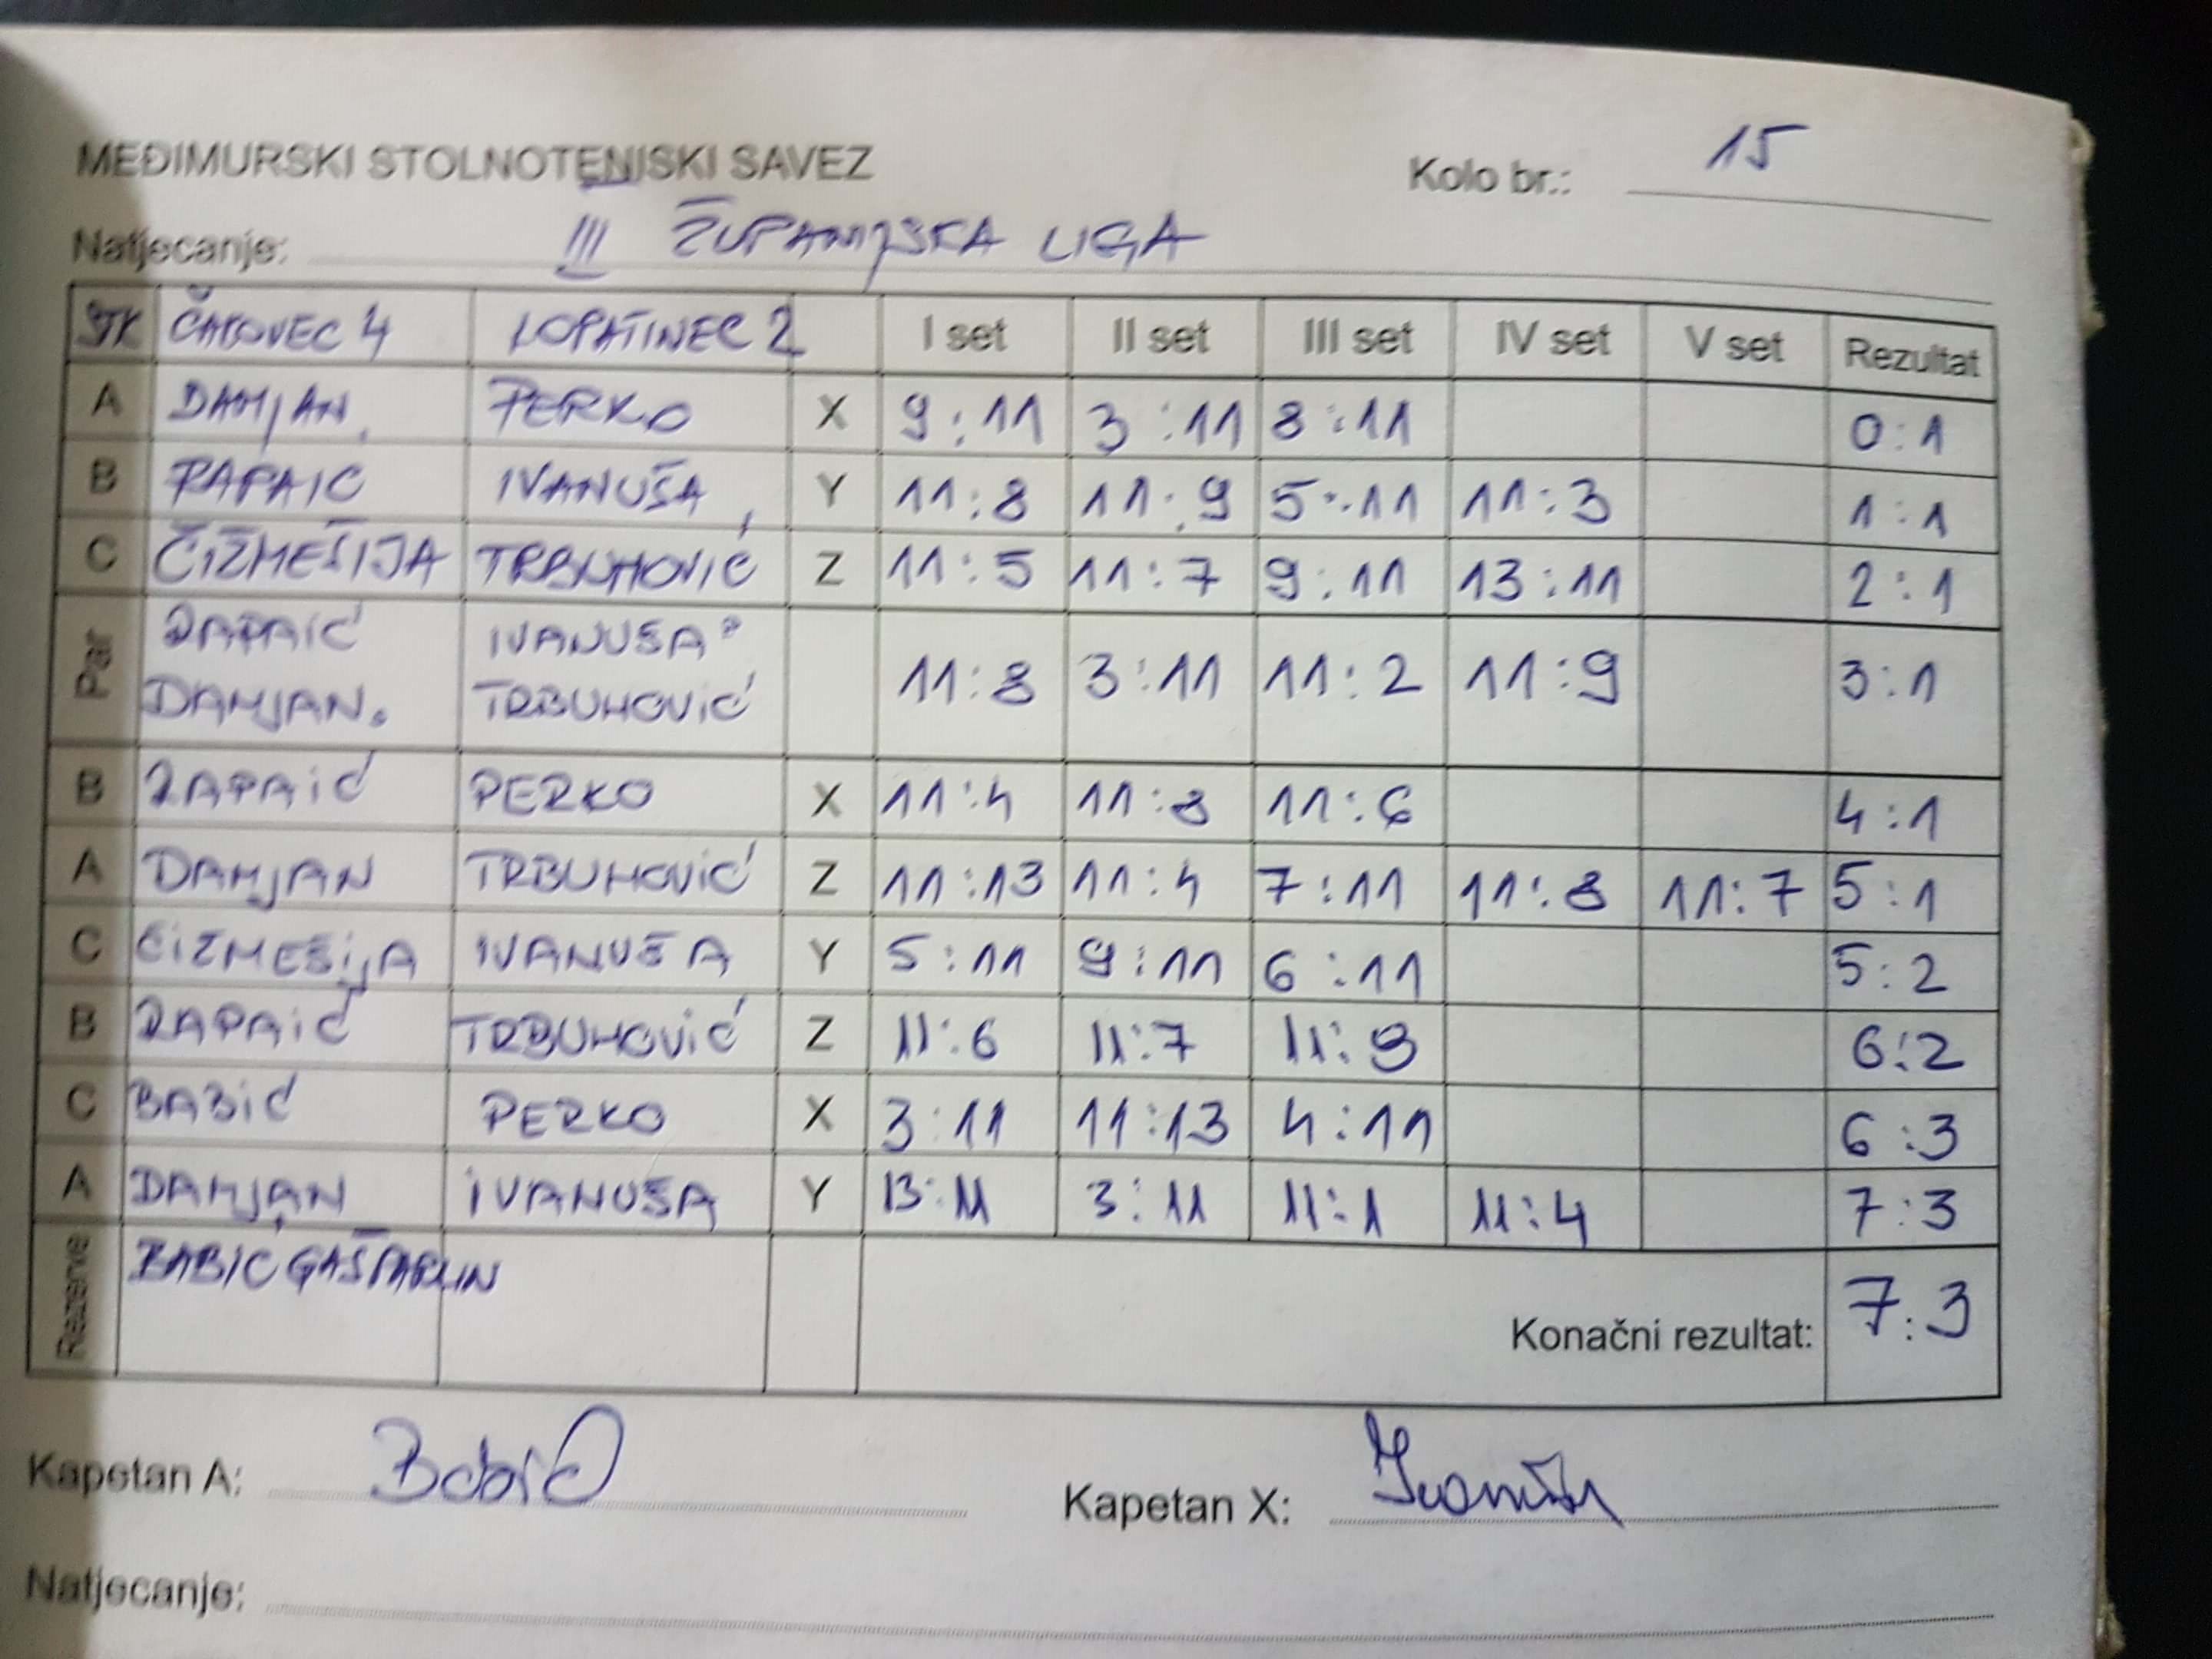 MEĐIMURSKI STOLNOTENISKI SAVEZ
Kolo br.: 15
Natjecanje: III ŽUPANIJSKA LIGA
STK ČAKOVEC 4 LOPATINEC 2 I set II set III set IV set V set Rezultat
A DAMJAN PERKO X 9:11 3:11 8:11 0:1
B RAPAIC IVANUŠA Y 11:8 11:9 5:11 11:3 1:1
C ČIŽMEŠIJA TRBUHOVIĆ Z 11:5 11:7 9:11 13:11 2:1
Par RAPAIĆ IVANUŠA
DAMJAN. TRBUHOVIĆ 11:8 3:11 11:2 11:9 3:1
B RAPAIĆ PERKO X 11:4 11:8 11:6 4:1
A DAMJAN TRBUHOVIĆ Z 11:13 11:4 7:11 11:8 11:7 5:1
C ČIŽMEŠIJA IVANUŠA Y 5:11 9:11 6:11 5:2
B RAPAIĆ TRBUHOVIĆ Z 11:6 11:7 11:9 6:2
C BABIĆ PERKO X 3:11 11:13 4:11 6:3
A DAMJAN IVANUŠA Y 13:11 3:11 11:1 11:4 7:3
Rezerve BABIĆ GAŠPARLIN
Konačni rezultat: 7:3
Kapetan A: Babić
Kapetan X: Ivanuša
Natjecanje: